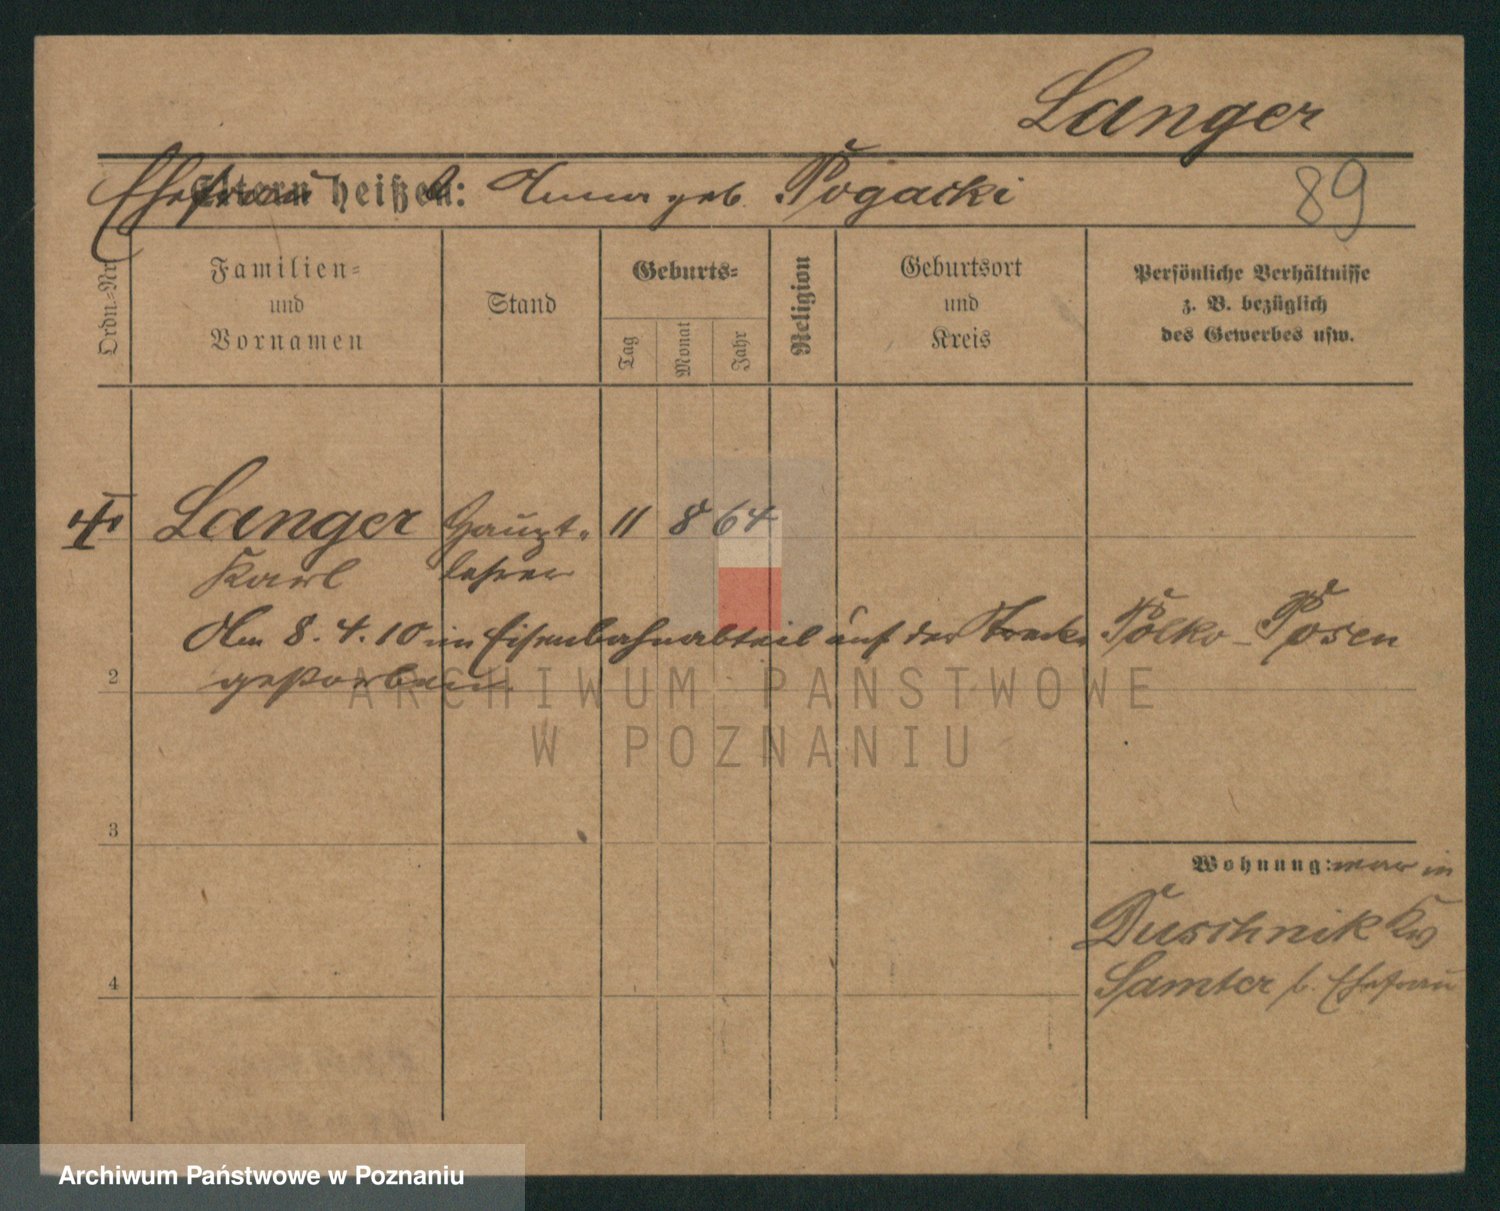 Langer
Eltern heißen:
Ehefrau Anna geb. Pogacki
89
Ordn.-Nr.
Familien-
und
Vornamen
Stand
Geburts-
Tag
Monat
Jahr
Religion
Geburtsort
und
Kreis
Persönliche Verhältnisse
z. B. bezüglich
des Gewerbes usw.
Langer Haupt- 11 8 64
Karl lehrer
Am 8.4.10 im Eisenbahnabteil auf der Strecke Polko - Posen
2 gestorben.
3
Wohnung: war in
Duschnik Krs
4 Samter b. Ehefrau
ARCHIWUM PAŃSTWOWE
W POZNANIU
Archiwum Państwowe w Poznaniu